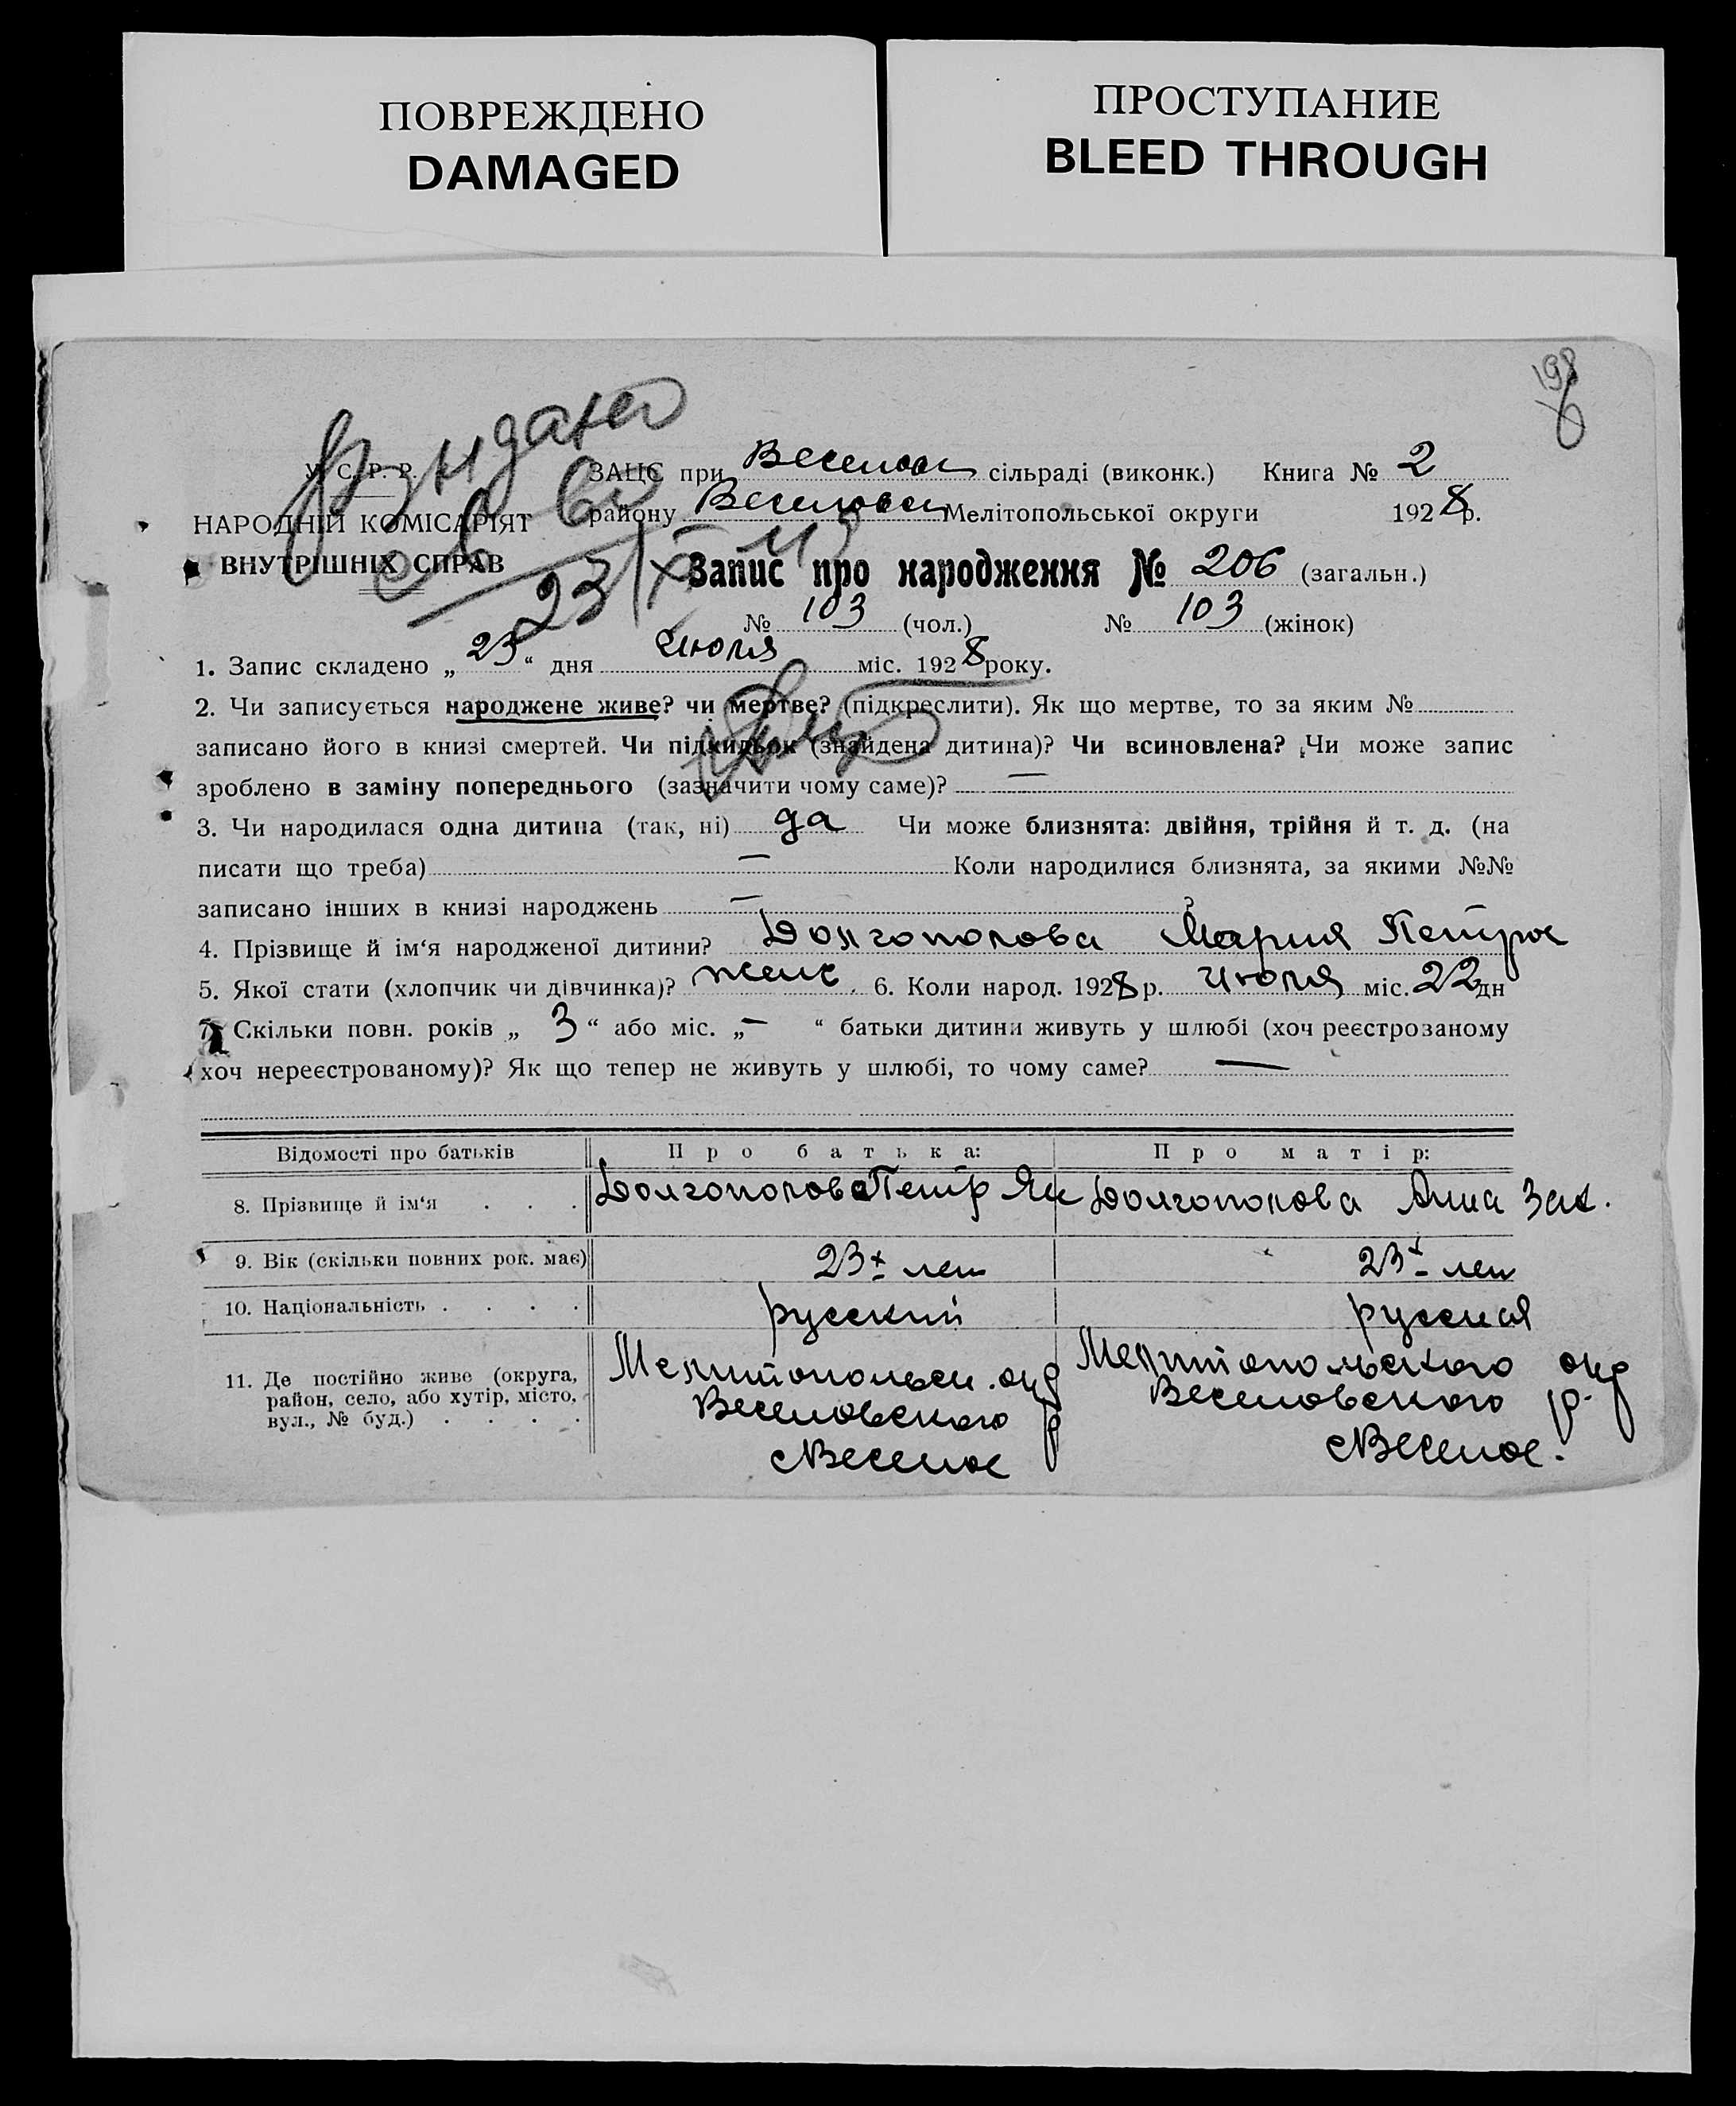 ПОВРЕЖДЕНО
DAMAGED
ПРОСТУПАНИЕ
BLEED THROUGH
198
У. С. Р. Р.
НАРОДНІЙ КОМІСАРІЯТ
ВНУТРІШНІХ СПРАВ
23/X
ЗАЦС при Веселовск сільраді (виконк.) Книга № 2
району Веселовск Мелітопольської округи 1928 р.
Запис про народження № 206 (загальн.)
№ 103 (чол.) № 103 (жінок)
1. Запис складено „ 23 “ дня Июля міс. 1928 року.
2. Чи записується народжене живе? чи мертве? (підкреслити). Як що мертве, то за яким №
записано його в книзі смертей. Чи підкидьок (знайдена дитина)? Чи всиновлена? Чи може запис
зроблено в заміну попереднього (зазначити чому саме)? —
3. Чи народилася одна дитина (так, ні) да Чи може близнята: двійня, трійня й т. д. (на
писати що треба) — Коли народилися близнята, за якими №№
записано інших в книзі народжень — ?
4. Прізвище й ім‘я народженої дитини? Долгополова Мария Петров
5. Якої стати (хлопчик чи дівчинка)? женс. 6. Коли народ. 1928 р. Июля міс. 22 дн
7. Скільки повн. років „ 3 “ або міс. „ — “ батьки дитини живуть у шлюбі (хоч реєстрованому
хоч нереєстрованому)? Як що тепер не живуть у шлюбі, то чому саме? —
Відомості про батьків Про батька: Про матір:
8. Прізвище й ім‘я . . . Долгополова Петр Як Долгополова Анна Зах.
9. Вік (скільки повних рок. має) 23 х лет 23 х лет
10. Національність . . . . русский русская
11. Де постійно живе (округа, район, село, або хутір, місто, вул., № буд.) . . . .
Мелитопольск. окр
Веселовского р
с Веселое
Мелитопольского окр
Веселовского р.
с Веселое.